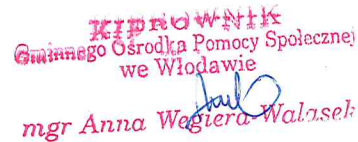 KIEROWNIK
Gminnego Ośrodka Pomocy Społecznej
we Włodawie
mgr Anna Węgiera-Walasek